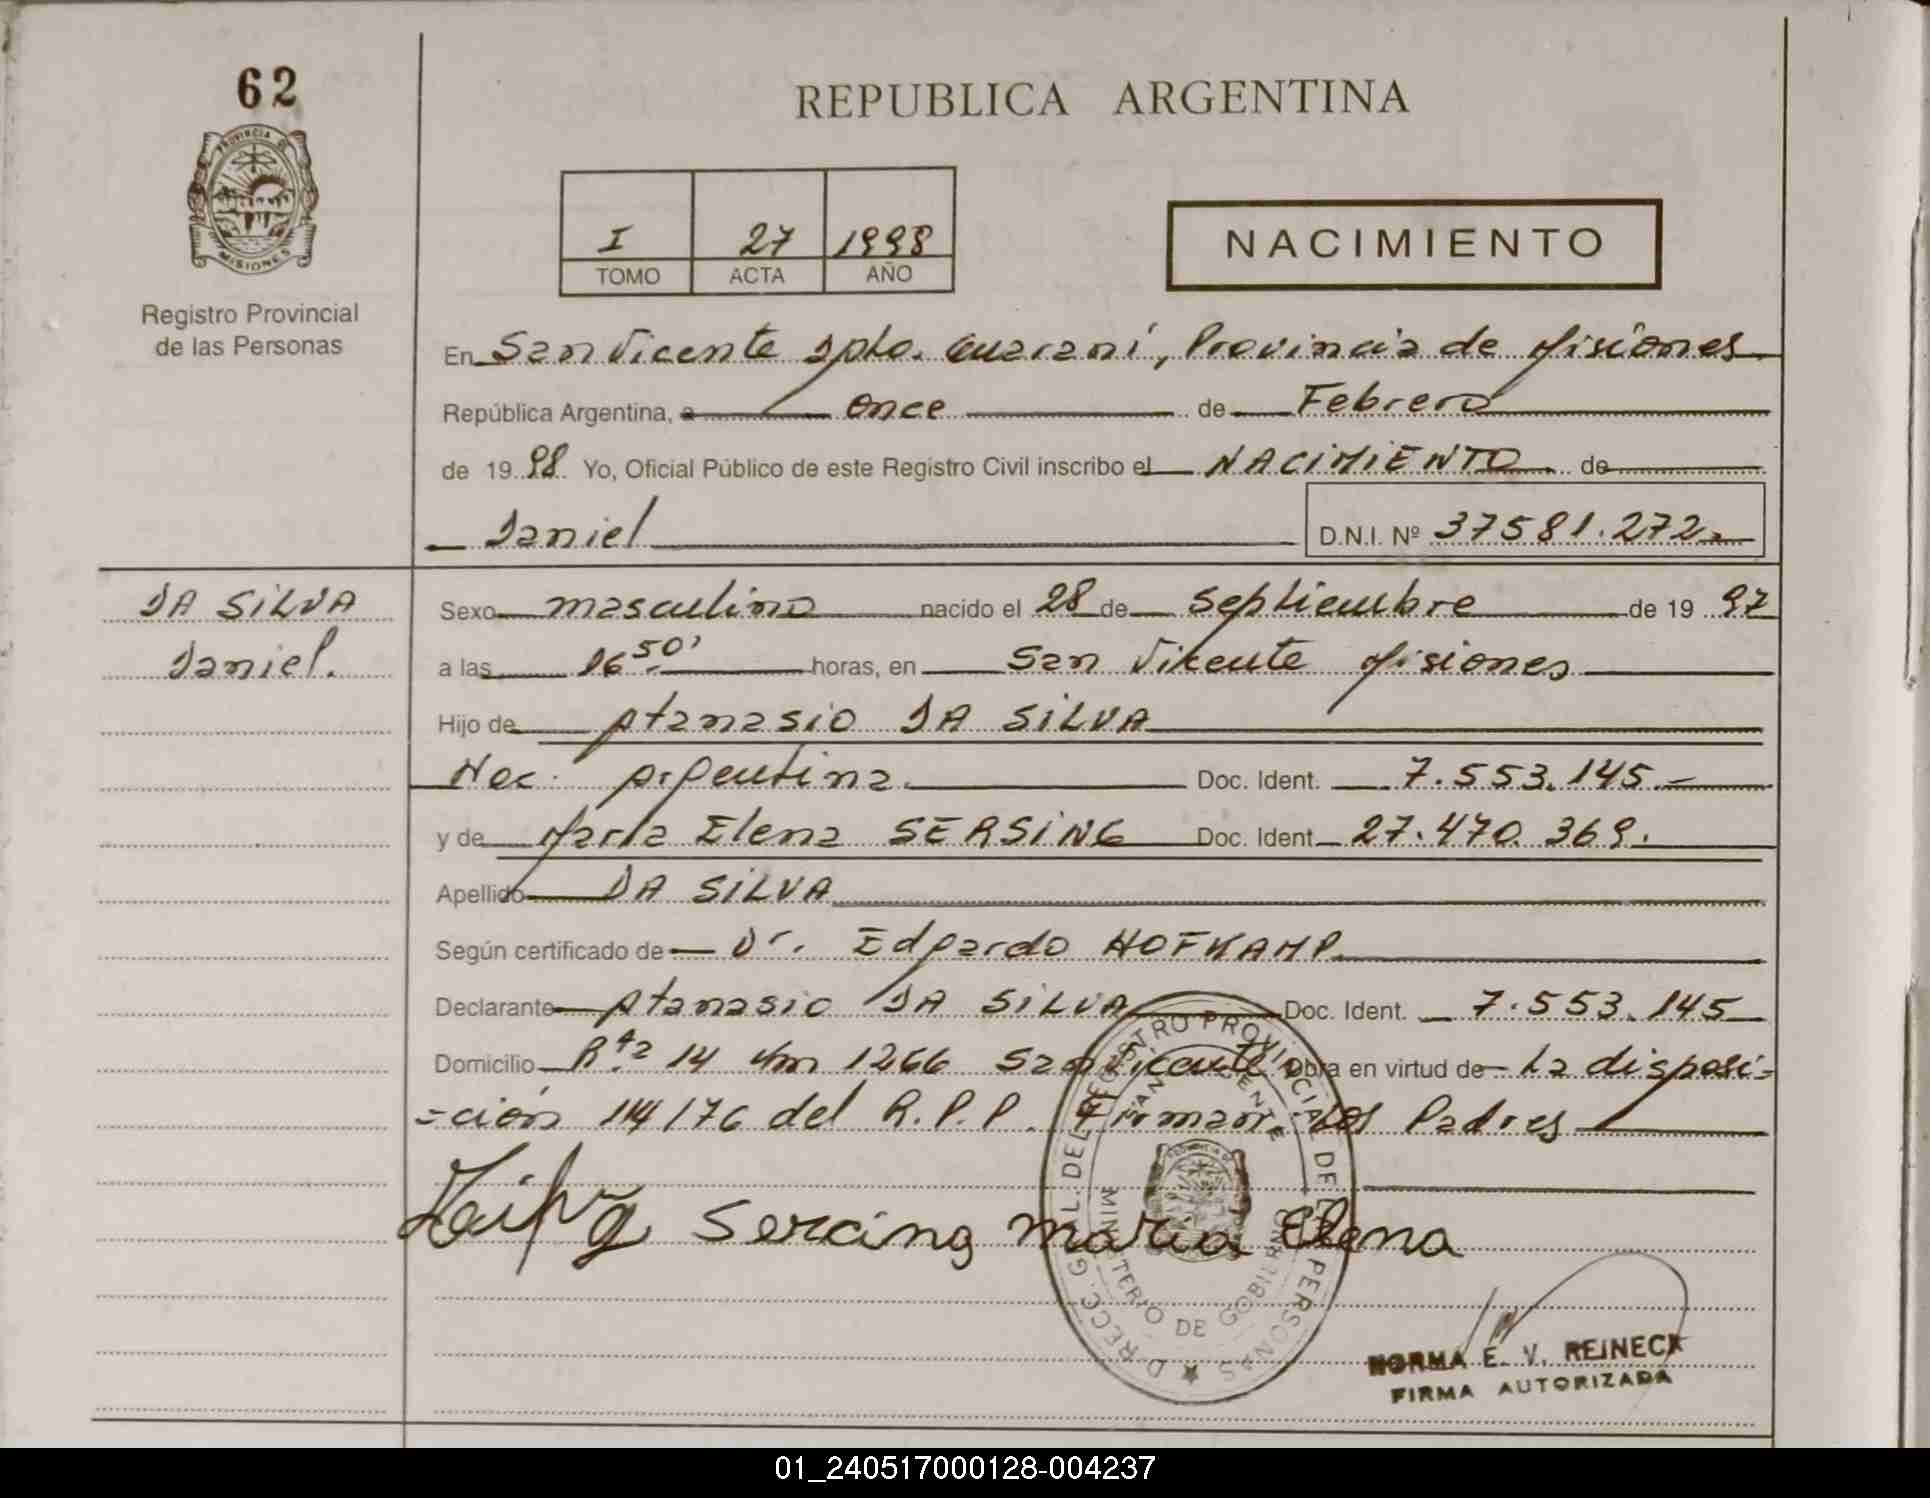 62
REPUBLICA ARGENTINA
PROVINCIA DE
MISIONES
I 27 1998
TOMO ACTA AÑO
NACIMIENTO
Registro Provincial
de las Personas
En San Vicente Dpto. Guaraní, Provincia de Misiones
República Argentina, a once de Febrero
de 19 98 Yo, Oficial Público de este Registro Civil inscribo el NACIMIENTO de
Daniel D.N.I. Nº 37581.272
DA SILVA
Daniel.
Sexo masculino nacido el 28 de Septiembre de 19 97
a las 16 50' horas, en San Vicente Misiones
Hijo de Atanasio DA SILVA
Nac. Argentina. Doc. Ident. 7.553.145.-
y de María Elena SERSING Doc. Ident 27.470.369.
Apellido DA SILVA
Según certificado de Dr. Edgardo HOFKAMP
Declarante Atanasio DA SILVA Doc. Ident. 7.553.145
Domicilio R.ta 14 Km 1266 San Vicente Obra en virtud de La disposi=
=ción 114/76 del R.P.P. Firman Los Padres
Sercing maria Elena
D RECC. GRL. DEL REGISTRO PROVINCIAL DE PERSONAS
SAN VICENTE
MINISTERIO DE GOBIERNO
NORMA E. V. REINECK
FIRMA AUTORIZADA
01_240517000128-004237